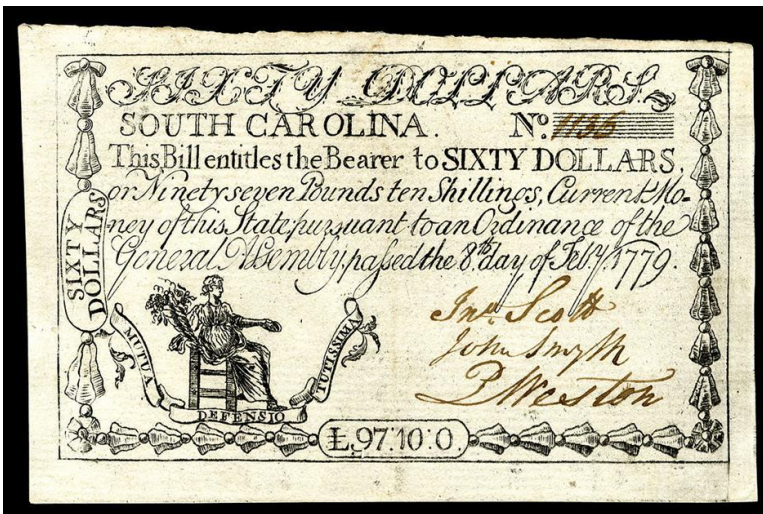 SIXTY DOLLARS.
SOUTH CAROLINA. No. 1135
This Bill entitles the Bearer to SIXTY DOLLARS,
or Ninety seven Pounds ten Shillings, Current Mo-
ney of this State, pursuant to an Ordinance of the
General Assembly, passed the 8th. day of Feby. 1779.
SIXTY DOLLARS
Jno. Scott
John Smyth
P Weston
MUTUA DEFENSIO TUTISSIMA
£.97:10:0.